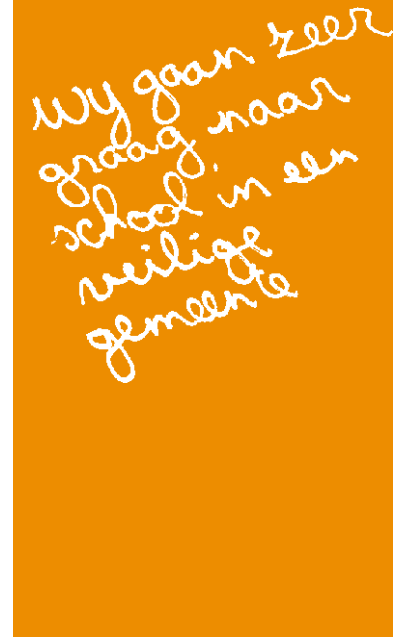 Wij gaan zeer
graag naar
school in een
veilige
gemeente